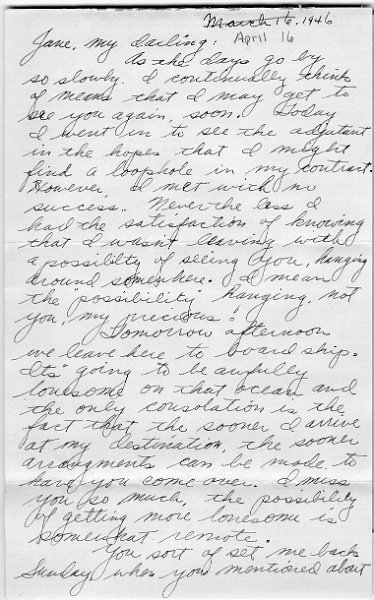 March 16, 1946
April 16
Jane, my darling:
As the days go by
so slowly. I continually think
of means that I may get to
see you again, soon. Today
I went in to see the adjutant
in the hopes that I might
find a loophole in my contract.
However, I met with no
success. Never the less I
had the satisfaction of knowing
that I wasn't leaving with
a possibility of seeing you, hanging
around somewhere. I mean
the "possibility" hanging, not
you, my precious.
Tomorrow afternoon
we leave here to board ship.
Its going to be awfully
lonesome on that ocean and
the only consolation is the
fact that the sooner I arrive
at my destination, the sooner
arrangments can be made to
have you come over. I miss
you so much, the possibility
of getting more lonesome is
somewhat remote.
You sort of set me back
Sunday when you mentioned about